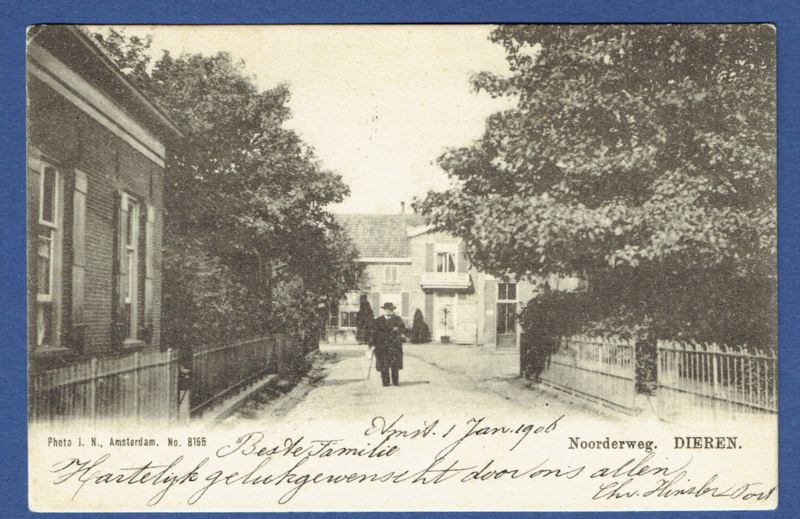 Photo J. N., Amsterdam. No. 8165
Noorderweg. DIEREN.
Amst. 1 Jan. 1906
Beste Familie
Hartelijk gelukgewenscht door ons allen
Chr.